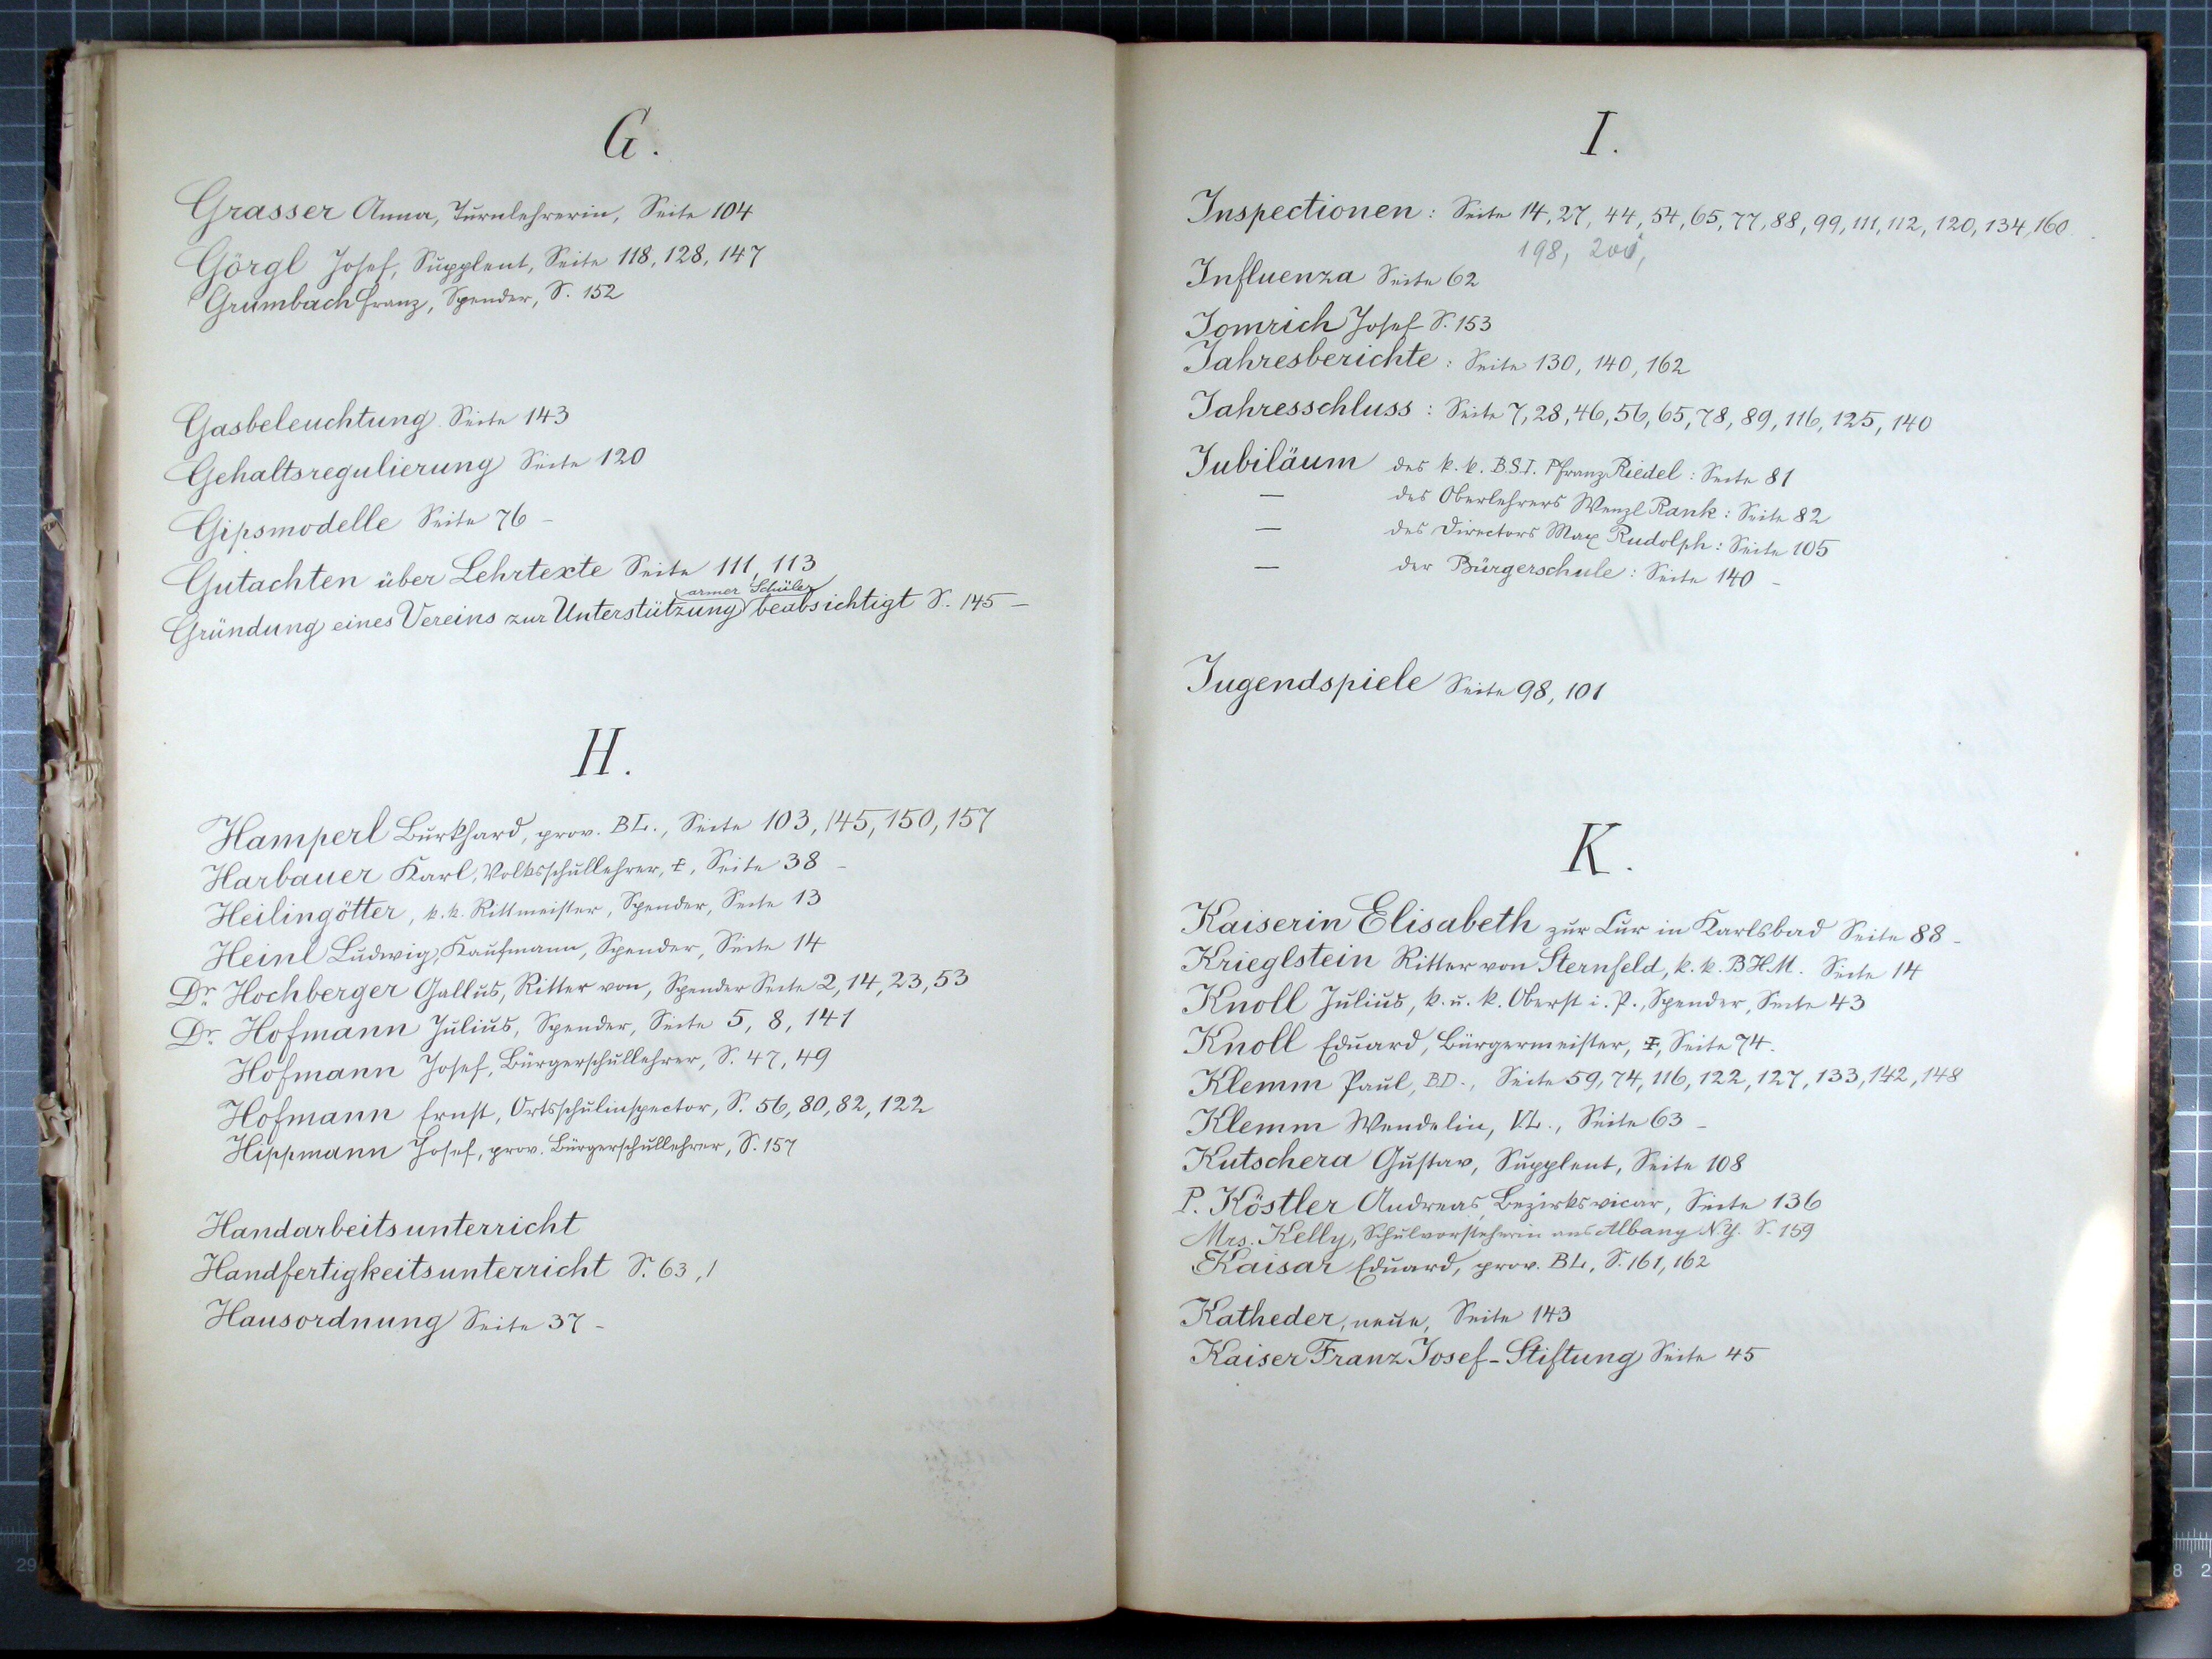 G.
Grasser Anna, Turnlehrerin, Seite 104
Görgl Josef, Supplent, Seite 118, 128, 147
Grumbach Franz, Spender, S. 152
Gasbeleuchtung Seite 143
Gehaltsregulierung Seite 120
Gipsmodelle Seite 76 –
Gutachten über Lehrtexte Seite 111, 113
armer Schüler
Gründung eines Vereins zur Unterstützung beabsichtigt S. 145 –
H.
Hamperl Burkhard, prov. BL., Seite 103, 145, 150, 157
Harbauer Karl, Volksschullehrer, ✝, Seite 38 –
Heilingötter, k. k. Rittmeister, Spender, Seite 13
Heinl Ludwig, Kaufmann, Spender, Seite 14
Dr. Hochberger Gallus, Ritter von, Spender Seite 2, 14, 23, 53
Dr. Hofmann Julius, Spender, Seite 5, 8, 141
Hofmann Josef, Bürgerschullehrer, S. 47, 49
Hofmann Ernst, Ortsschulinspector, S. 56, 80, 82, 122
Hippmann Josef, prov. Bürgerschullehrer, S. 157
Handarbeitsunterricht
Handfertigkeitsunterricht S. 63, 1
Hausordnung Seite 37 –
I.
Inspectionen: Seite 14, 27, 44, 54, 65, 77, 88, 99, 111, 112, 120, 134, 160
198,
Influenza Seite 62
Jomrich Josef S. 153
Jahresberichte: Seite 130, 140, 162
Jahresschluss: Seite 7, 28, 46, 56, 65, 78, 89, 116, 125, 140
Jubiläum des k. k. B.S.I. Franz Riedel: Seite 81
— des Oberlehrers Wenzl Rank: Seite 82
— des Directors Max Rudolph: Seite 105
— der Bürgerschule: Seite 140 –
Jugendspiele Seite 98, 101
K.
Kaiserin Elisabeth zur Cur in Karlsbad Seite 88 –
Krieglstein Ritter von Sternfeld, k. k. BHM. Seite 14
Knoll Julius, k. u. k. Oberst i. P., Spender, Seite 43
Knoll Eduard, Bürgermeister, ✝, Seite 74.
Klemm Paul, BD., Seite 59, 74, 116, 122, 127, 133, 142, 148
Klemm Wendelin, VL., Seite 63 –
Kutschera Gustav, Supplent, Seite 108
P. Köstler Andreas, Bezirksvicar, Seite 136
Mrs. Kelly, Schulvorsteherin aus Albany N.Y. S. 159
Kaisar Eduard, prov. BL, S. 161, 162
Katheder, neue, Seite 143
Kaiser Franz Josef-Stiftung Seite 45
29
8 2